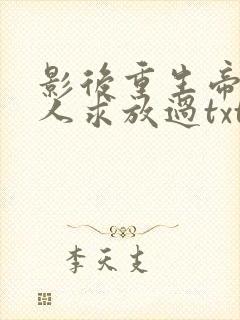 影後重生帝
人求放過txt
李天支